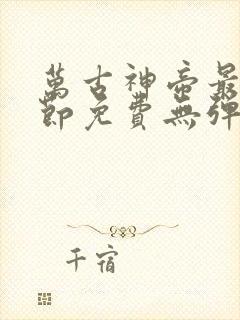 萬古神帝最
節免費無彈
千宿